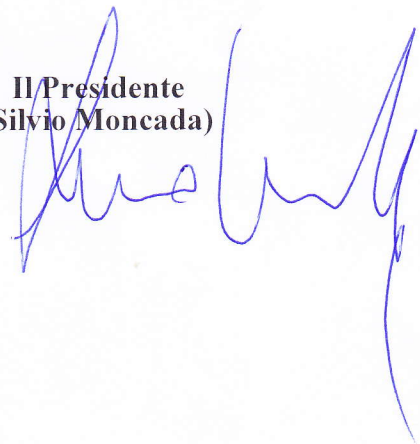 Il Presidente
Silvio Moncada)